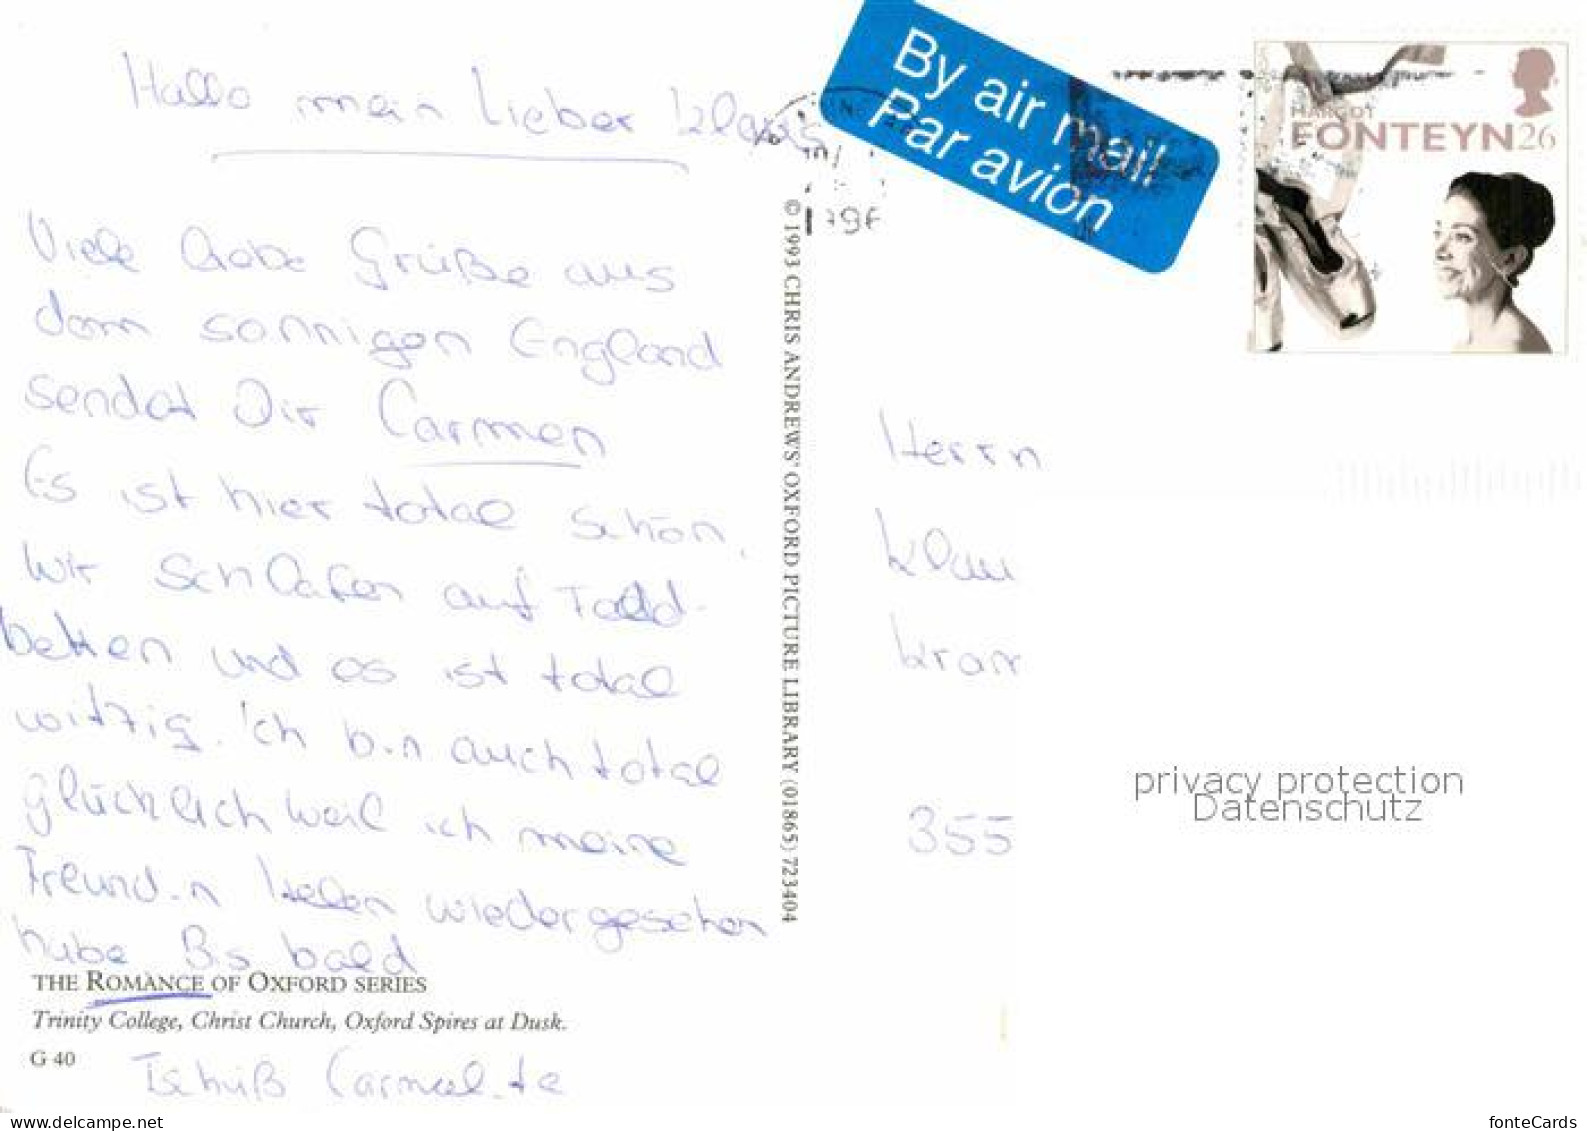 Hallo mein lieber Klaus
Viele liebe Grüße aus
dem sonnigen England
sendet Dir Carmen
Es ist hier total schön.
Wir schlafen auf Feld-
betten und es ist total
witzig. Ich bin auch total
glücklich weil ich meine
Freundin Helen wiedergesehen
habe Bis bald
THE ROMANCE OF OXFORD SERIES
Trinity College, Christ Church, Oxford Spires at Dusk.
G 40
Tschüß
© 1993 CHRIS ANDREWS' OXFORD PICTURE LIBRARY (01865) 723404
By air mail
Par avion
MARGOT
FONTEYN 26
Herrn
Klau
Kram
355
privacy protection
Datenschutz
www.delcampe.net
fonteCards